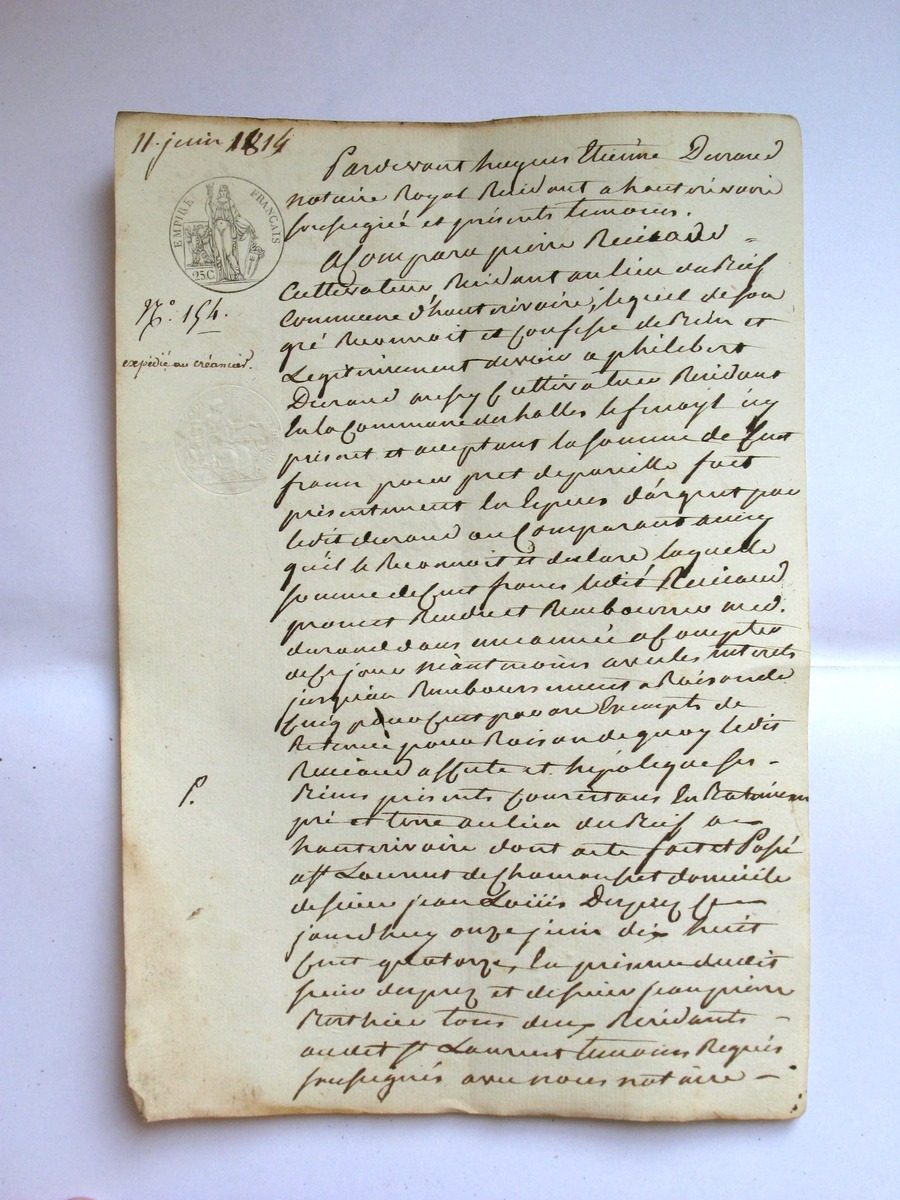 11. juin 1814
EMPIRE FRANÇAIS
25C.
N.° 154.
expédié au créancier.
P.
Pardevant hugues Etienne Durand
notaire Royal Residant a hauterivoire
soussigné et présents temoins.
a Comparu pierre
Cultivateur Residant au lieu du
Commune d'hauterivoire, lequel de son
gré Reconnoit et Confesse de Bien et
Legitimement devoir a philibert
Durand Cultivateur Residant
En la Commune des halles le fenoyl icy
présent et acceptant la somme de Cent
francs pour pret de pareille fait
présentement En Especes d'argent par
ledit durand au Comparant ainsy
qu'il le Reconnoit et declare laquelle
somme de Cent francs ledit
promet Rendre et Rembourser aud.
durand dans une année a Compter
de Ce jour néantmoins avec les interets
jusqu'au Remboursement a Raison de
Cinq pour Cent par an Exempts de
Retenue pour Raison de quoy ledit
affecte et hypoteque ses
Biens présents Consistans En Batiment
pré et terre au lieu du a
hauterivoire dont acte fait et Passé
a St Laurent de Chamousset domicile
de sieur jean Loüis Duprez Ce
jourdhuy onze juin dix huit
Cent quatorze, En présence dudit
sieur duprez et de sieur jean pierre
Berthier tous deux Residants
audit St Laurent temoins Requis
soussignés avec nous notaire